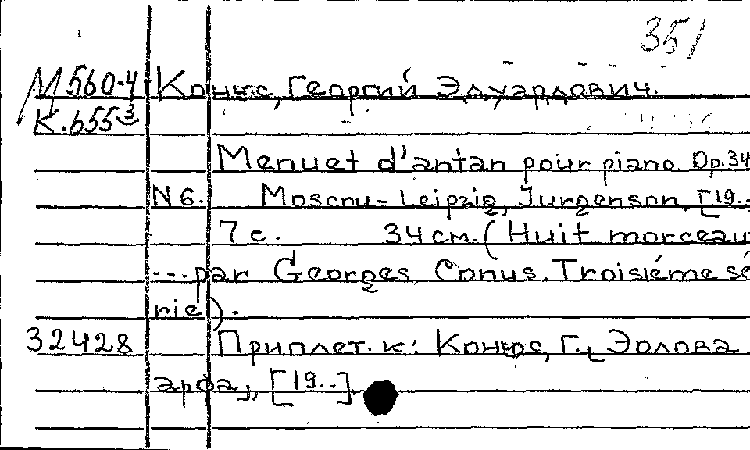 351
M560-4 Конюс, Георгий Эдуардович.
К.655³
Menuet d'antan pour piano. Op.34
N6. Moscou-Leipzig, Jurgenson, [19..
7 с. 34 см. (Huit morceau
...par Georges Conus. Troisiéme sé
rie).
32428 Приплет. к: Конюс, Г., Эолова
арфа, [19..]